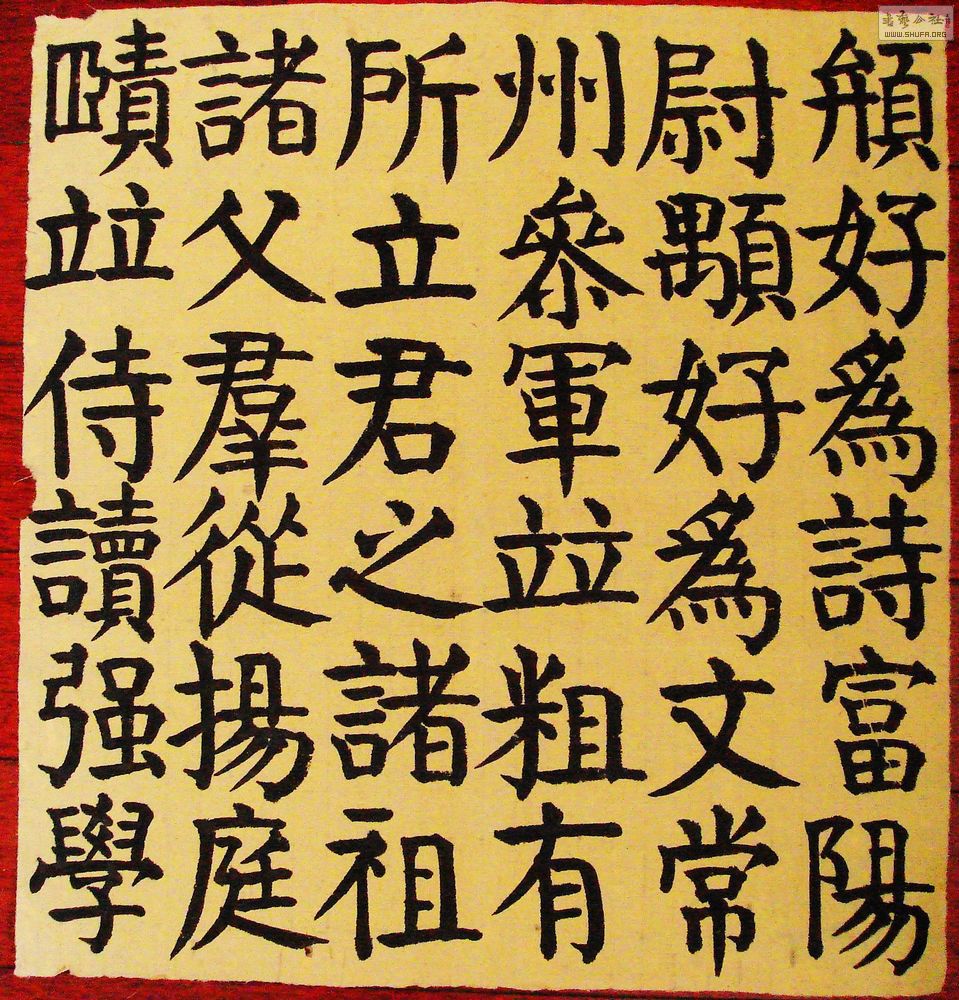 好爲詩富陽
尉顒好爲文常
州參軍竝粗有
所立君之諸祖
諸父羣從揚庭
賾竝侍讀强學
書藝公社
WWW.SHUFA.ORG